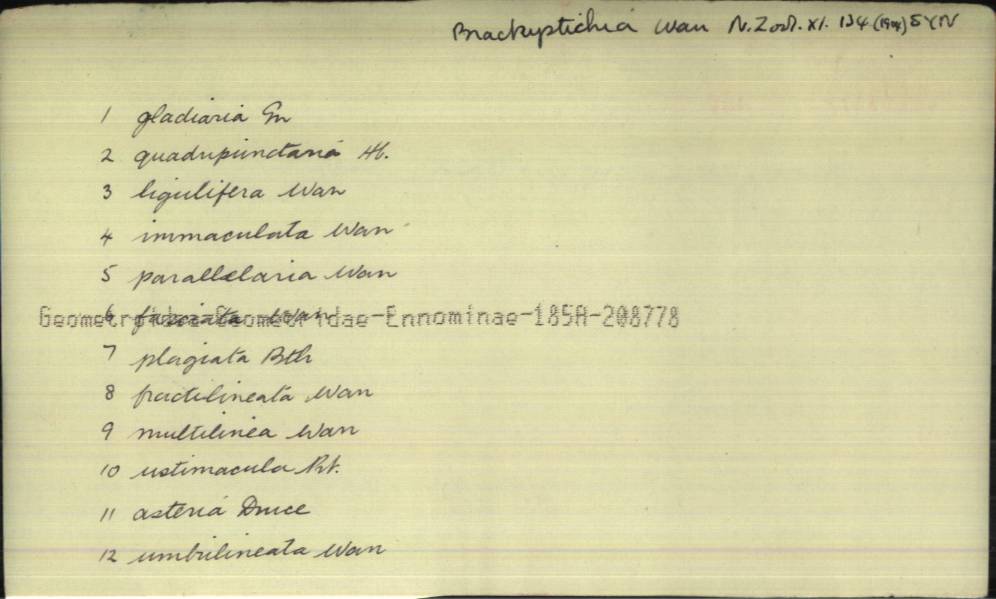 Brachystichia Warr N.Zool. XI. 134 (1904) SYN
1 gladiaria Gn
2 quadripunctaria Hb.
3 ligulifera Warr
4 immaculata Warr
5 parallelaria Warr
6 fasciata Warr
Geometroidea-Geometridae-Ennominae-185A-208778
7 plagiata Bth
8 fractilineata Warr
9 multilinea Warr
10 ustimacula
11 asteria Druce
12 umbrilineata Warr